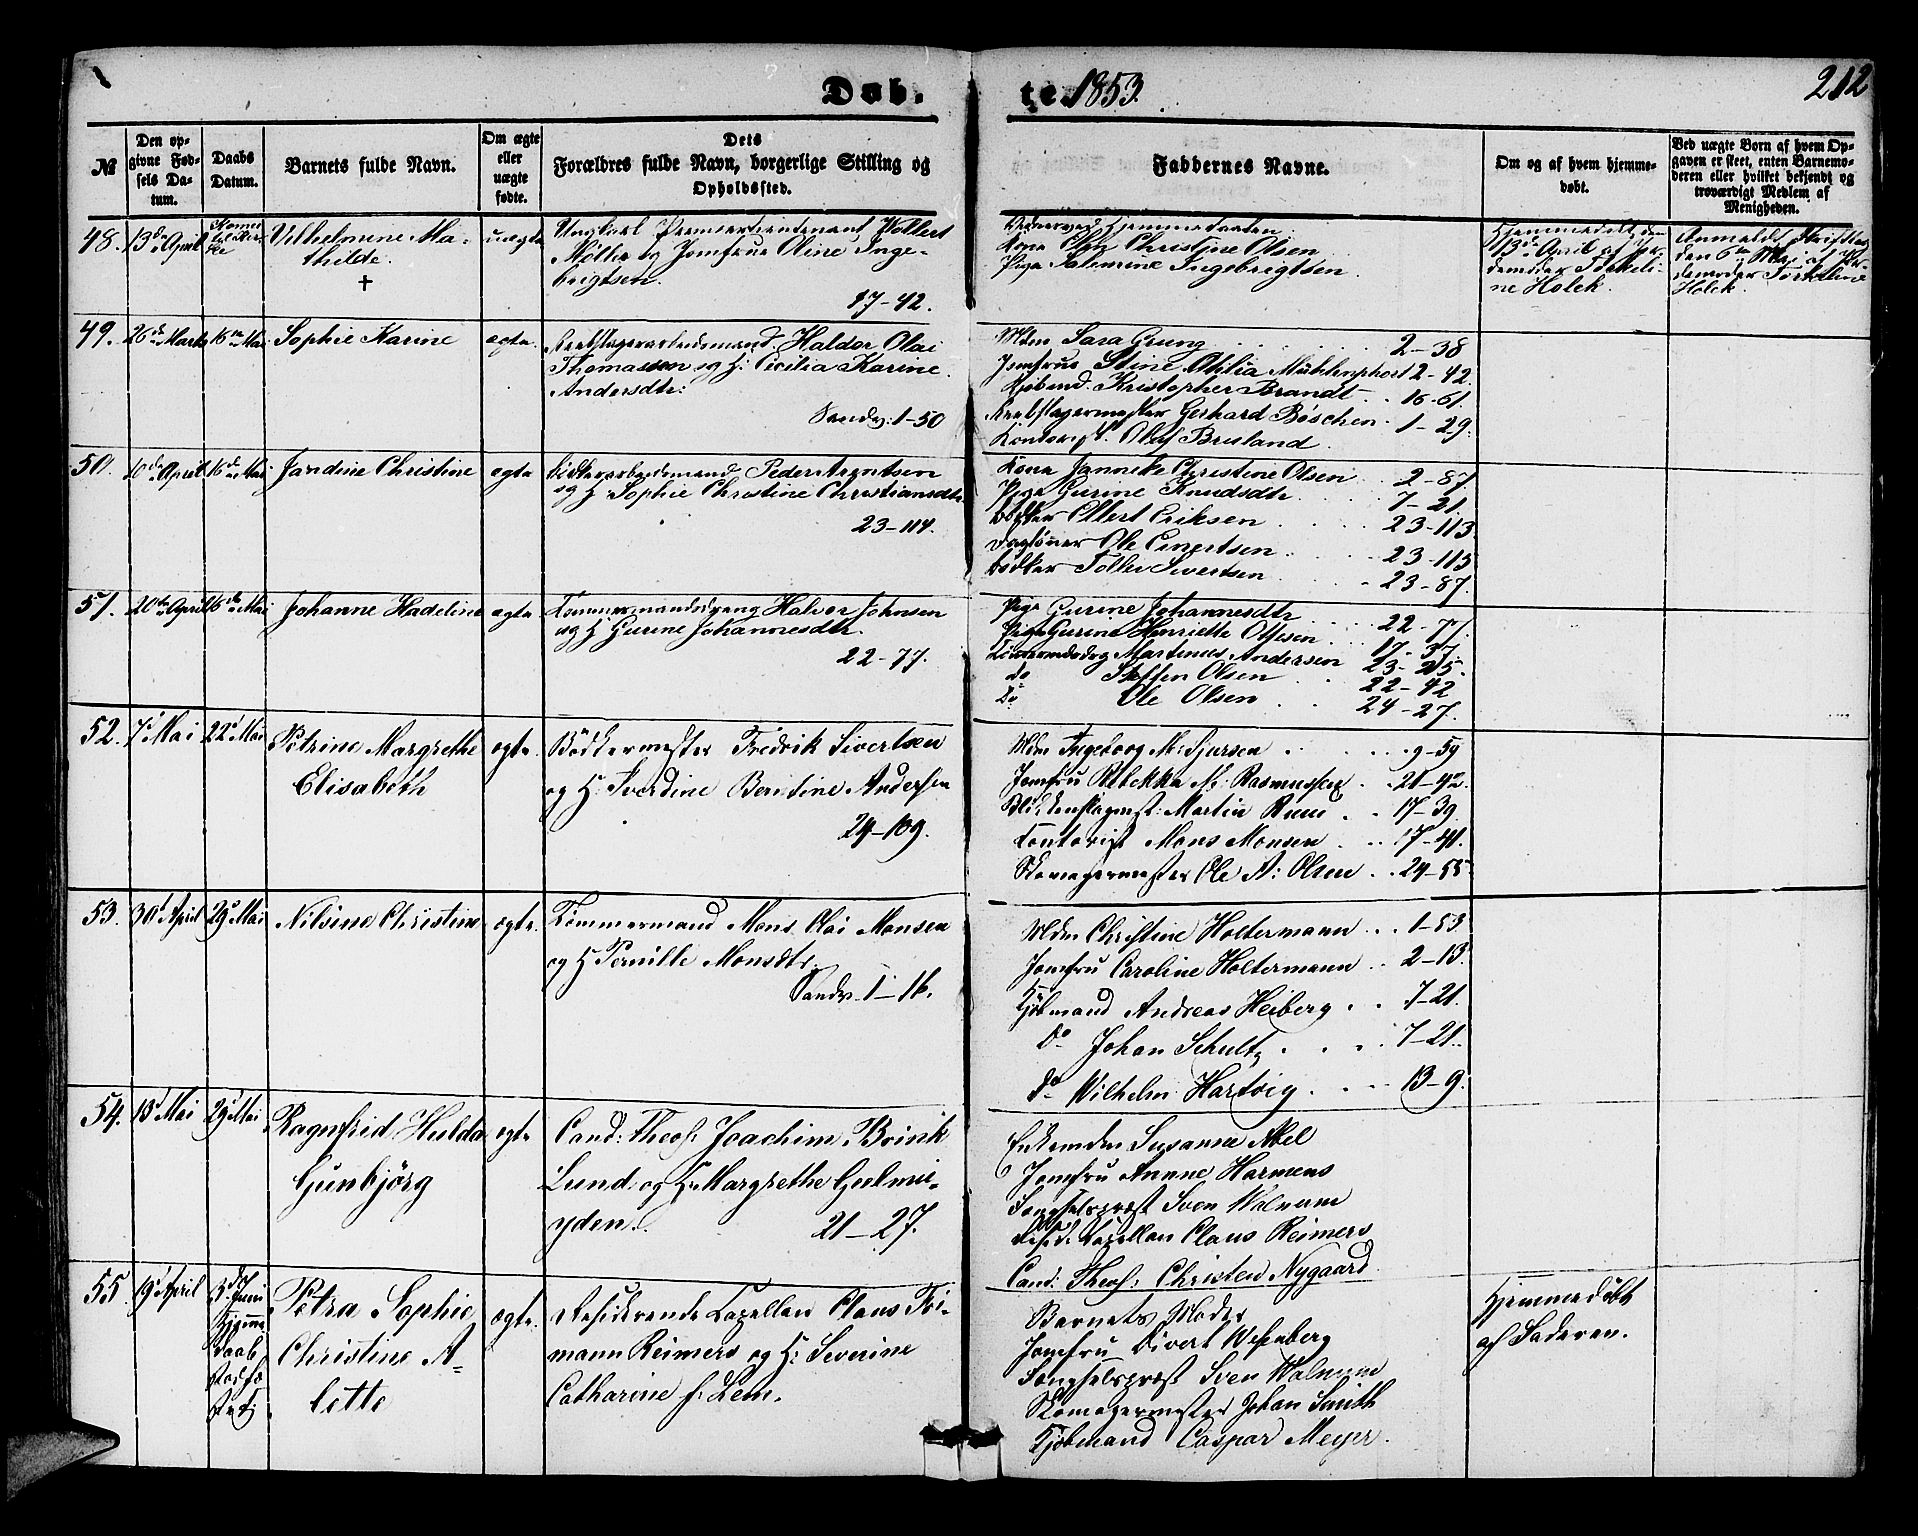 Døb. te 1853. 212
№
Den opgivne Fødsels Datum.
Daabs Datum.
Barnets fulde Navn.
Om ægte eller uægte fødte.
Dets Forældres fulde Navn, borgerlige Stilling og Opholdssted.
Faddernes Navne.
Om og af hvem hjemmedøbt.
Ved uægte Børn af hvem Opgaven er skeet, enten Barnemoderen eller hvilket bekjendt og troværdigt Medlem af Menigheden.
48. 13de April
Vilhelmine Ma-
thilde.
†
uægte
Ungkarl Premierlieutenant Vollert
Møller og Jomfrue Oline Inge-
brigtsen.
17-42.
Kone Christine Olsen
Pige Salemine Ingebrigtsen.
Hjemmedøbt den
13de April af Jor-
demoder Torkeli-
ne Holck.
Anmeldt
den 6te Mai af Jor-
demoder Torkeline
Holck.
49. 26de Marts 16de Mai
Sophie Karine
ægte.
Arbeidsmand Haldor Olai
Thomassen og H: Cecilia Karine
Andersdtr:
Sandv: 1-50
Mdm Sara Grung 2-38
Jomfrue Stine Othilia Mühlenphort 2-42.
Kristopher Brandt 16-61.
Gerhard Böschen 1-29.
Kontorist Oluf Bruland.
50. 10de April 16de Mai
Jandine Christine
ægte
arbeidsmand Peder Arentsen
og H: Sophie Christine Christiansdtr.
23-114.
Kone Janneke Christine Olsen 2-87.
Pige Gurine Knudsdtr 7-21.
Bødker Ellert Eriksen 23-113.
Dagløner Ole Einertsen 23-115
Bødker Tollev Sivertsen 23-87.
51. 20de April 16de Mai
Johanne Hadeline
ægte
Tømmermandsdreng Halvor Johnsen
og H: Gurine Johannesdtr.
22-77.
Pige Gurine Johannesdtr 22-77.
Pige Gurine Henriette Ottesen 17-37.
Martinus Andersen 23-25.
do Steffen Olsen 22-42
Do Ole Olsen 24-27.
52. 7d Mai 22d Mai
Petrine Margrethe
Elisabeth
ægte.
Bødkermester Fredrik Sivertsen
og H: Iverdine Berntine Andersen
24-109.
Mdm Ingeborg M: Sjursen 9-59
Jomfru Rebekka M: Rasmussen 21-42.
Martin Ruus 17-39.
Contorist Mons Monsen 17-41.
Skomagermester Ole A: Olsen 24-55
53. 30d April 29d Mai
Nilsine Christine
ægte.
Tømmermand Mons Olai Monsen
og H Pernille Monsdtr.
Sandv. 1-16.
Mdm Christine Holtermann 1-53.
Jomfru Caroline Holtermann 2-13.
Kjøbmand Andreas Heiberg 7-21.
Do Johan Schultz 7-21.
Do Wilhelm Hartvig 13-9.
54. 13d Mai 29d Mai
Ragnfrid Hulda
Gunbjörg
ægte
Cand: Theol: Joachim Brink
Lund og H: Margrethe Gulmi-
yden.
21-27.
Enkemdm Susanne Abel
Jomfru Annne Harmens
Fængselspræst Sven Walnum
Resid: Capellan Claus Reimers
Cand: Theol: Christen Nygaard.
55 19d April 3d Juni
Hjemme
daab
Petra Sophie
Christine A-
lette
ægte.
Residerende Capellan Claus Fri-
mann Reimers og H: Severine
Catharine f: Lem.
Barnets Moder
Jomfru Divert Wesenberg
Fængselspræst Sven Walnum
Skomagermester Johan Smith
Kjøbmand Caspar Meyer.
Hjemmedøbt
af Faderen.